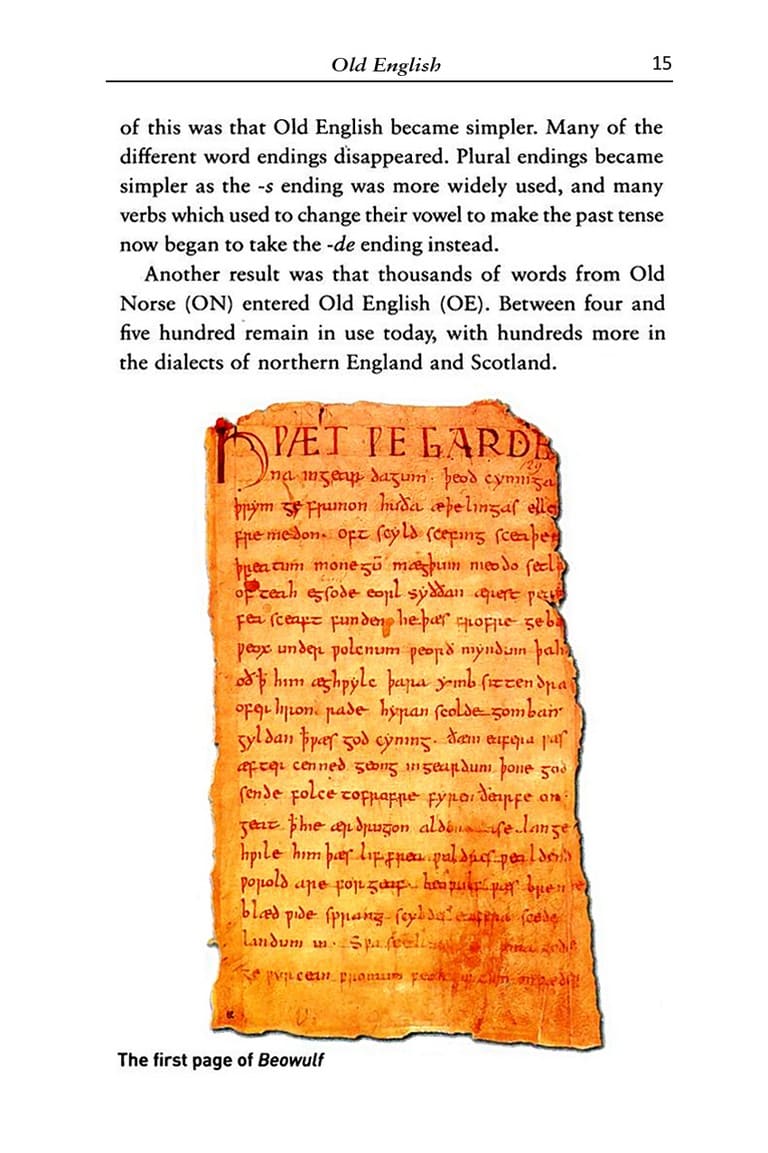 Old English 15
of this was that Old English became simpler. Many of the
different word endings disappeared. Plural endings became
simpler as the -s ending was more widely used, and many
verbs which used to change their vowel to make the past tense
now began to take the -de ending instead.
Another result was that thousands of words from Old
Norse (ON) entered Old English (OE). Between four and
five hundred remain in use today, with hundreds more in
the dialects of northern England and Scotland.
HǷÆT ǷE GARDE
na ingear dagum. þeod cyninga
þrym ge frunon huða æþelingas elle
fremedon. oft scyld scefing sceaþe
þreatum monegū mægþum meodo setl
of teah egsode eorl syððan ærest
fea sceaft funden he þæs frofre geba
ƿeox under ƿolcnum ƿeorð myndum þah
oð ꝥ him æghƿylc þara ymb sittendra
ofer hron rade hyran scolde gomban
gyldan þƿæs god cyning. ðæm eafera ƿæs
æfter cenned geong ingeardum þone god
sende folce tofrofre fyren ðearfe on
geat ꝥ hie ær drugon lange
hƿile him þæs liffrea ƿuldres ƿealdend
ƿorold are forgeaf. beoƿulf ƿæs breme
blæd ƿide sprang scyldes eafera scede
landum in. Sƿa
ge ƿyrcean fromum
The first page of Beowulf